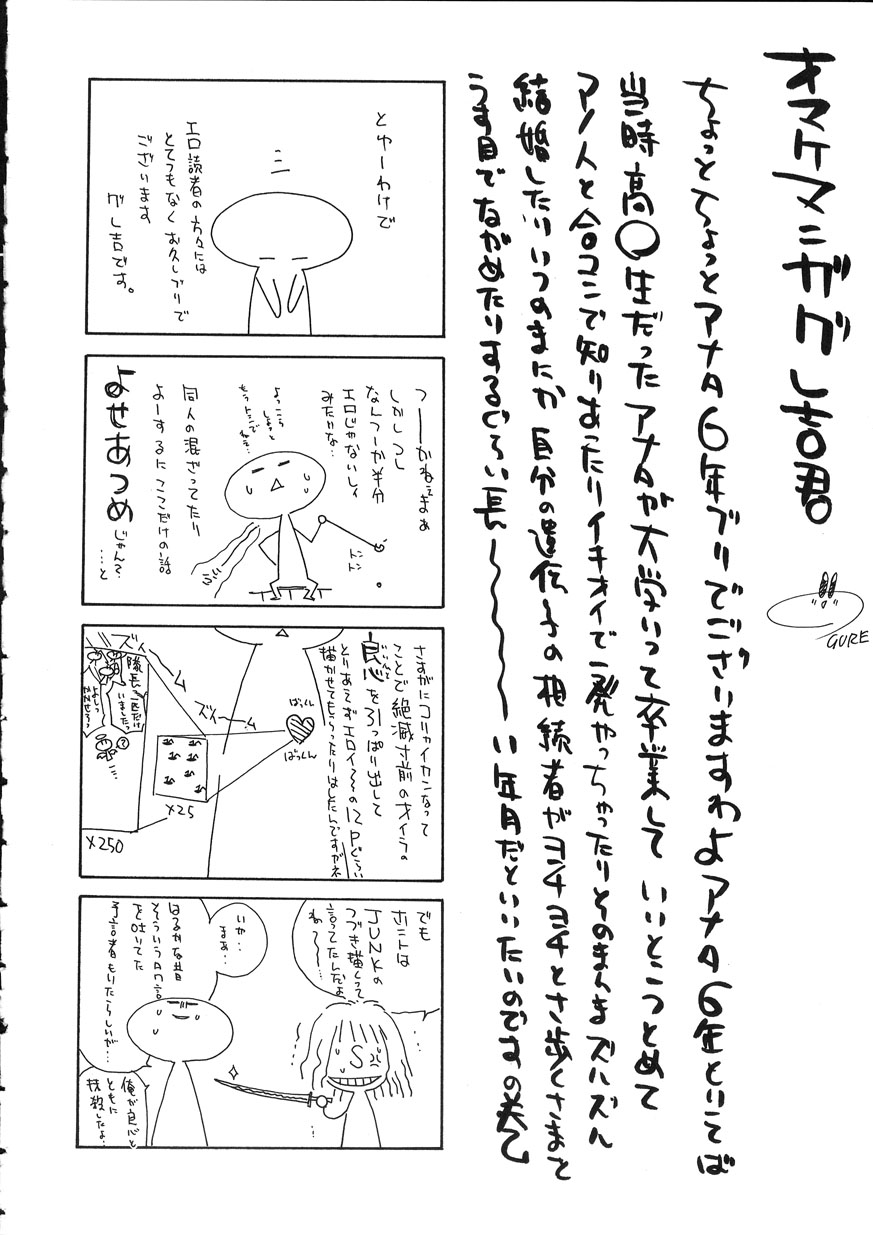 オマケマンガグレ吉君
GURE
ちょっとちょっとアナタ6年ブリでございますわよアナタ6年といてば
当時高〇生だったアナタが大学いって卒業していいとこつとめて
アノ人と合コンで知りあったりイキオイで一発やっちゃったりとそのまんまズルズル
結婚したりいつのまにか自分の遺伝子の相続者がヨチヨチとさ歩くさまを
うす目でながめたりするぐらい長〜〜い年月だといいたいのですの巻
とゆーわけで
エロ読者の方々には
とてつもなくお久しブリで
ございます
グレ吉です。
つーかねぇまぁ
しかしつし
なんつーか半分
エロじゃないしィ
みたいな…
よっこら
しょっと
トントン
同人の混ざってたり
よーするにここだけの話
よせあつめ
じゃん?
…と
さすがにコリャイカンなって
ことで絶滅寸前のオイラの
良心を引っぱり出して
とりあえずエロイ〜の12Pぐらい
描かせてもらったりはしたんですがネ
ばっくん
ばっくん
ズィーーム
ズィーム
×25
×250
隊長一匹だけ
いましたっ
でも
ホントは
JUNKの
つづき描くって
言ってたんだよ
ね〜〜…
S
いや…
まぁ…
はるかな昔
そういう
を吐いてた
予言者もいたらしいが…
俺が良心と
ともに
抹殺したよ…